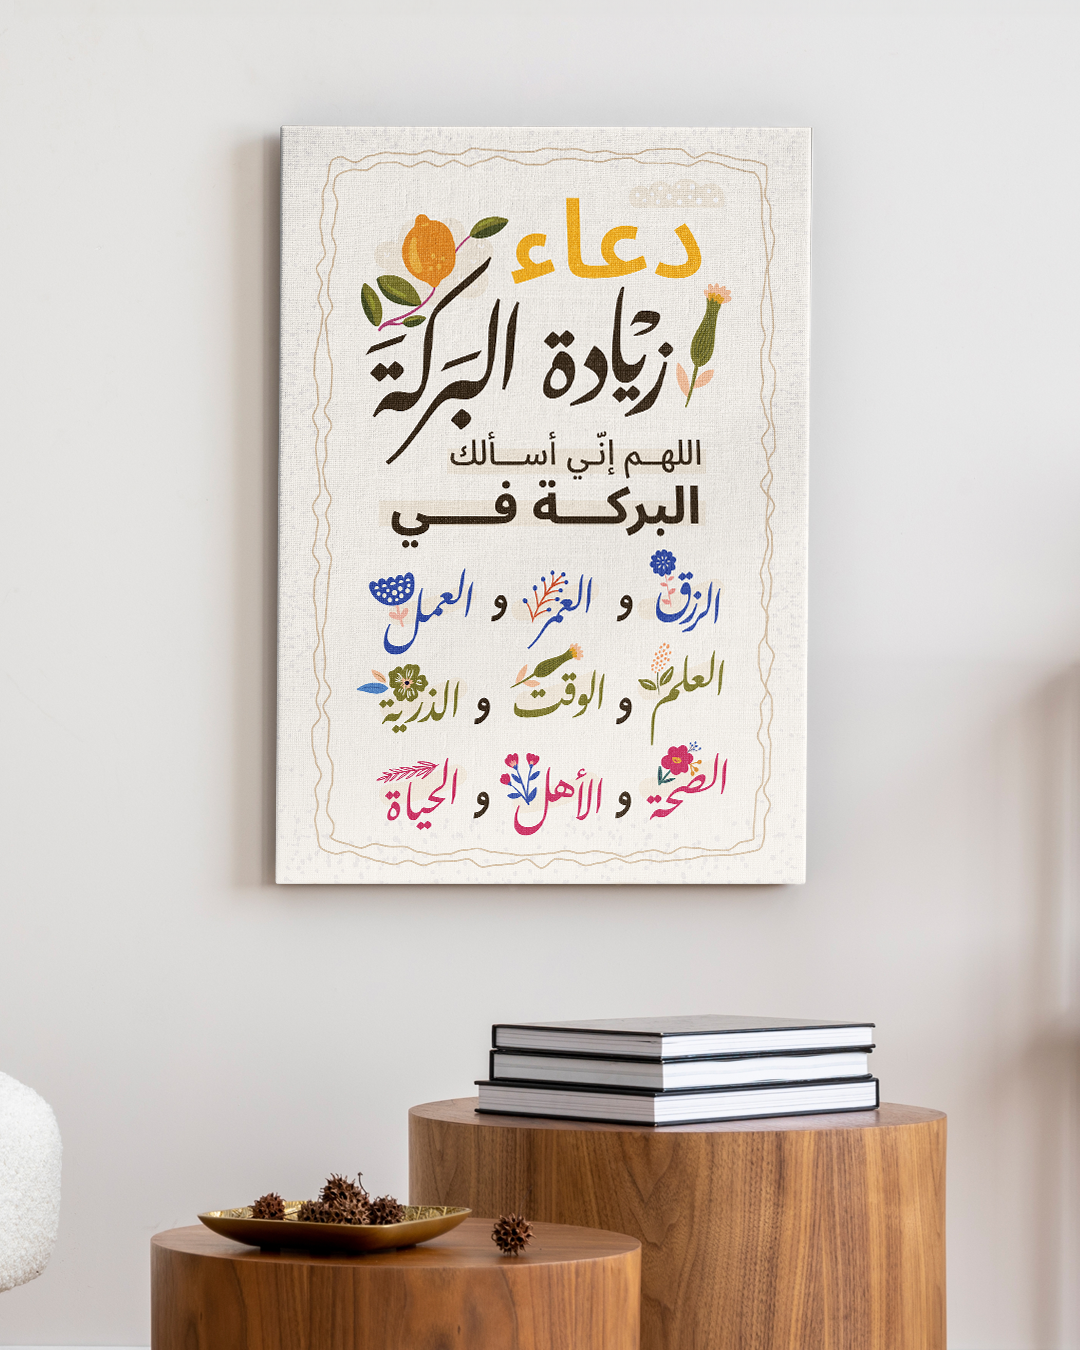 دعاء
زيادة البركةَ
اللهم إنّي أسألك
البركة في
الرزق و العمر و العمل
العلم و الوقت و الذرية
الصحة و الأهل و الحياة